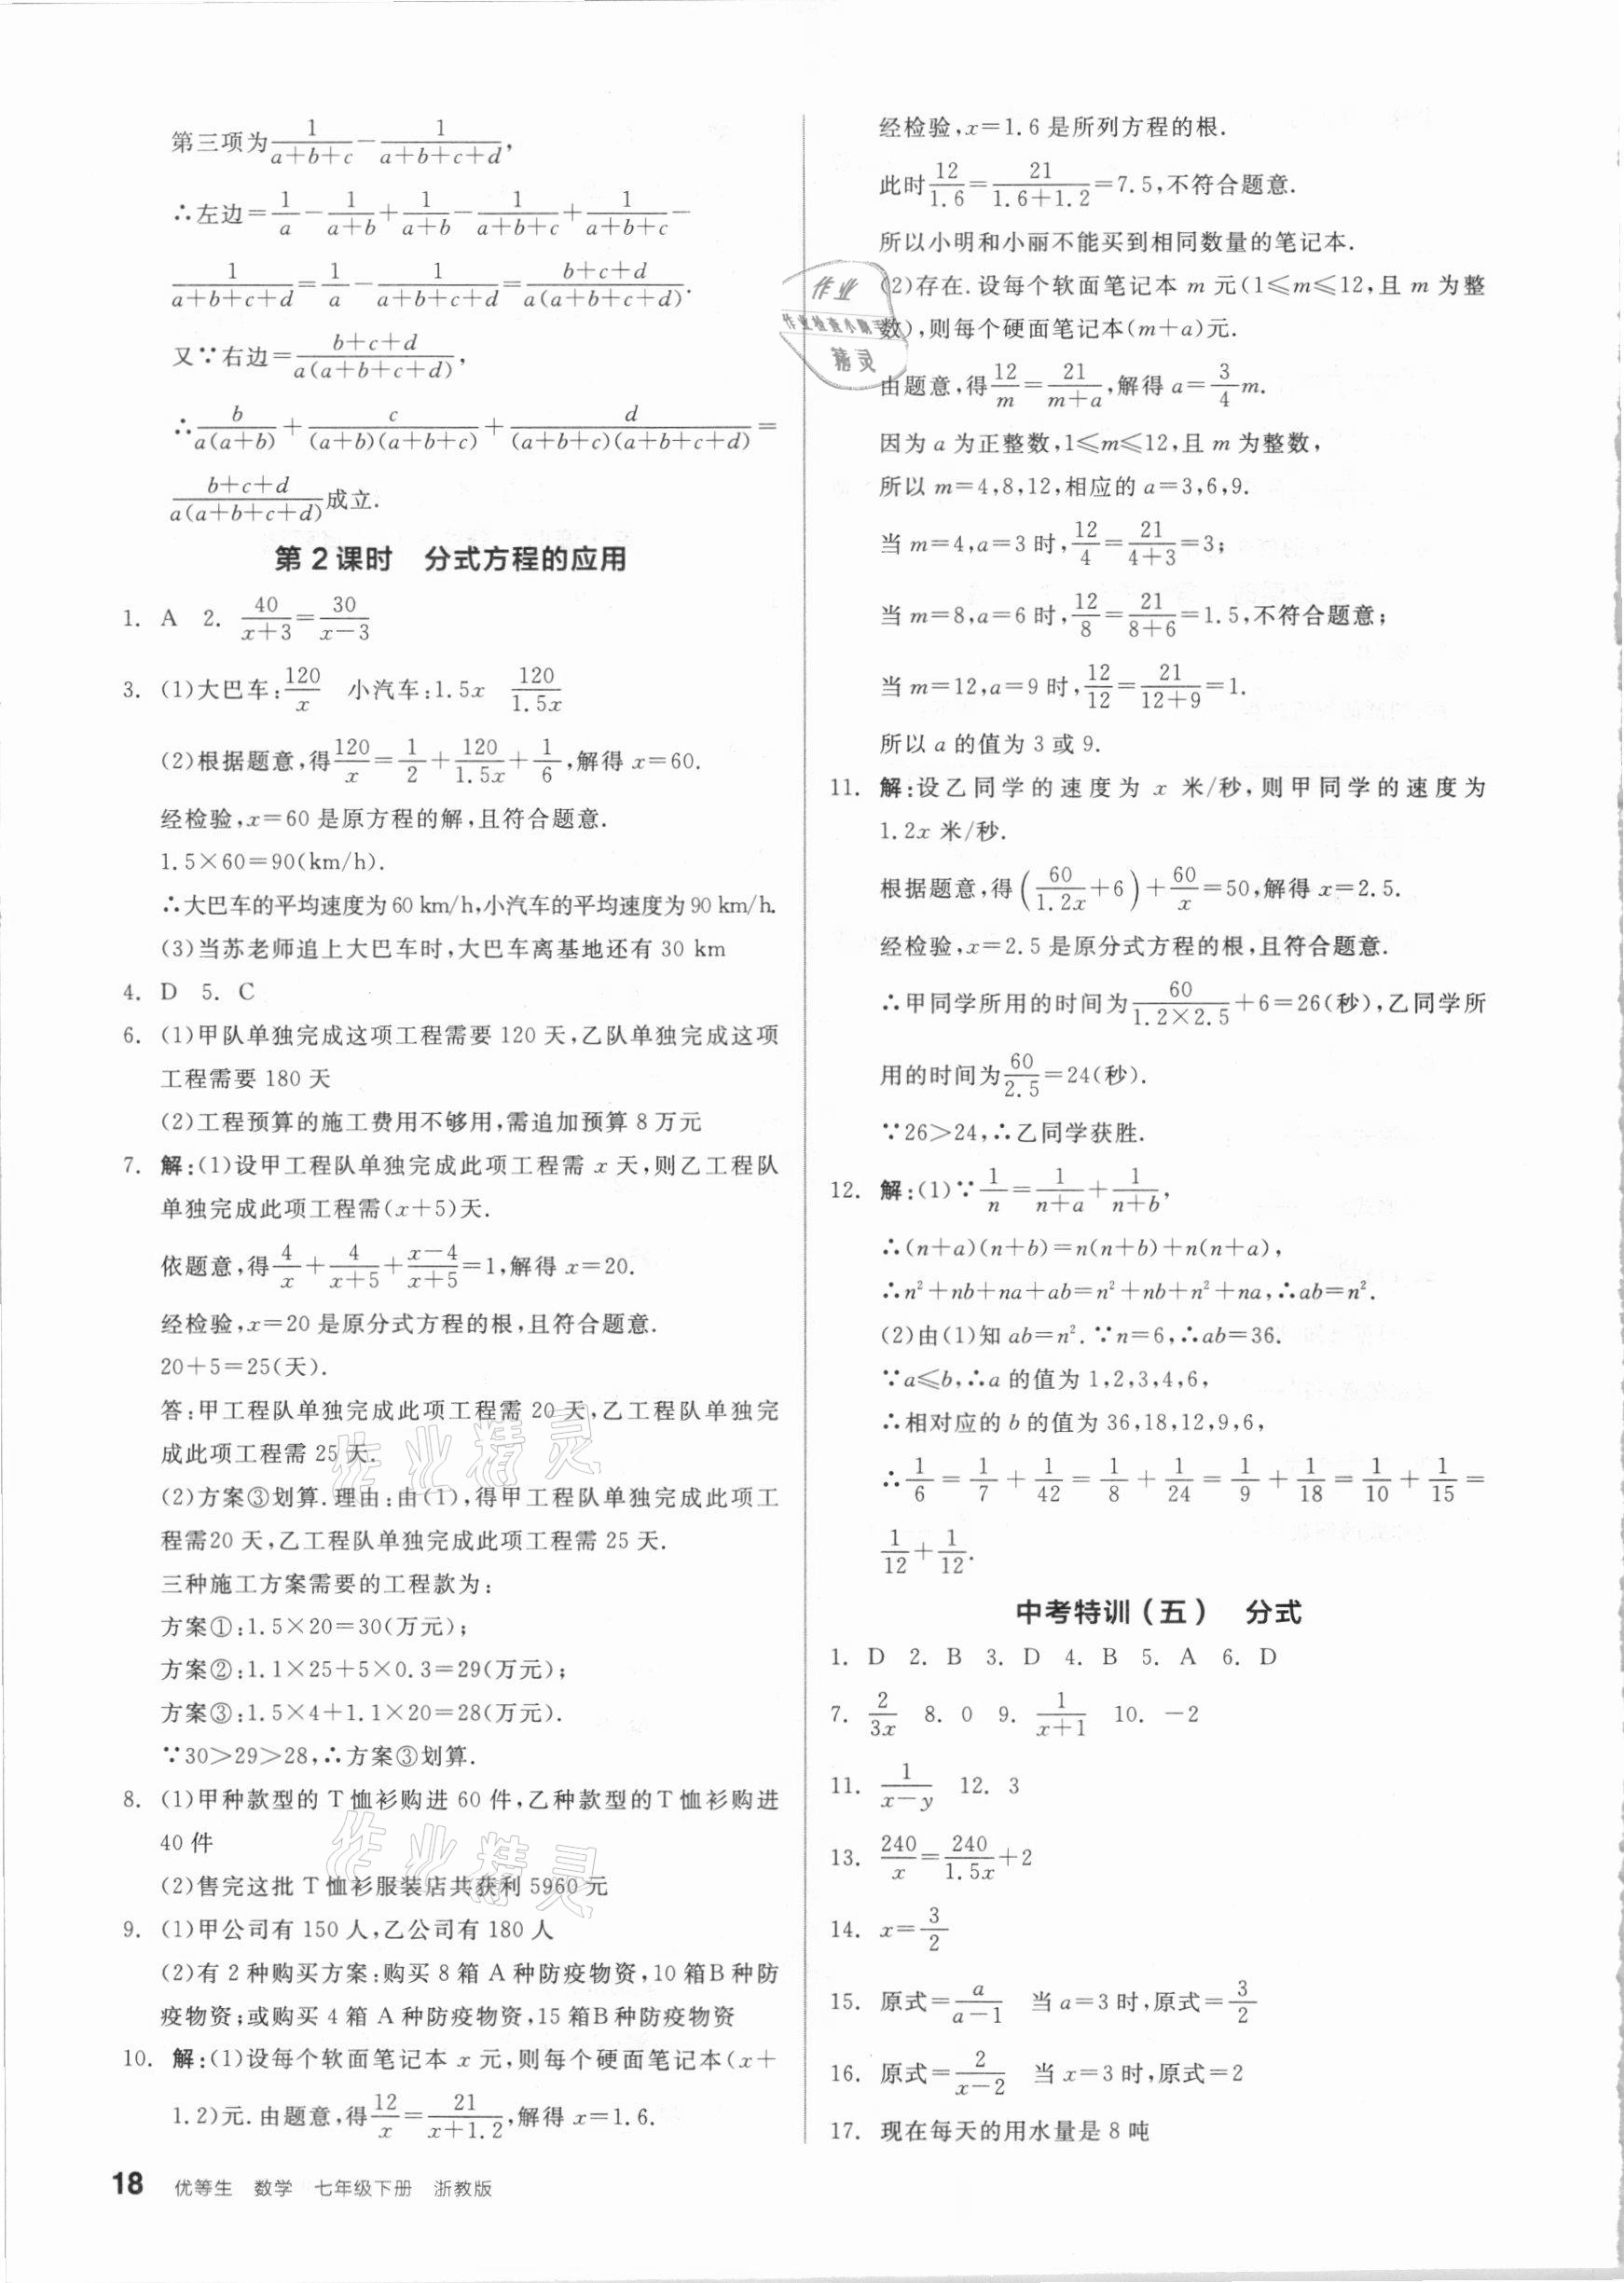 第三项为\frac{1}{a+b+c}-\frac{1}{a+b+c+d},
∴左边=\frac{1}{a}-\frac{1}{a+b}+\frac{1}{a+b}-\frac{1}{a+b+c}+\frac{1}{a+b+c}-
\frac{1}{a+b+c+d}=\frac{1}{a}-\frac{1}{a+b+c+d}=\frac{b+c+d}{a(a+b+c+d)}.
又∵右边=\frac{b+c+d}{a(a+b+c+d)},
∴\frac{b}{a(a+b)}+\frac{c}{(a+b)(a+b+c)}+\frac{d}{(a+b+c)(a+b+c+d)}=
\frac{b+c+d}{a(a+b+c+d)}成立.
第2课时 分式方程的应用
1. A 2. \frac{40}{x+3}=\frac{30}{x-3}
3. (1)大巴车:\frac{120}{x} 小汽车:1.5x \frac{120}{1.5x}
(2)根据题意,得\frac{120}{x}=\frac{1}{2}+\frac{120}{1.5x}+\frac{1}{6},解得x=60.
经检验,x=60是原方程的解,且符合题意.
1.5×60=90(km/h).
∴大巴车的平均速度为60 km/h,小汽车的平均速度为90 km/h.
(3)当苏老师追上大巴车时,大巴车离基地还有30 km
4. D 5. C
6. (1)甲队单独完成这项工程需要120天,乙队单独完成这项
工程需要180天
(2)工程预算的施工费用不够用,需追加预算8万元
7. 解:(1)设甲工程队单独完成此项工程需x天,则乙工程队
单独完成此项工程需(x+5)天.
依题意,得\frac{4}{x}+\frac{4}{x+5}+\frac{x-4}{x+5}=1,解得x=20.
经检验,x=20是原分式方程的根,且符合题意.
20+5=25(天).
答:甲工程队单独完成此项工程需20天,乙工程队单独完
成此项工程需25天.
(2)方案③划算.理由:由(1),得甲工程队单独完成此项工
程需20天,乙工程队单独完成此项工程需25天.
三种施工方案需要的工程款为:
方案①:1.5×20=30(万元);
方案②:1.1×25+5×0.3=29(万元);
方案③:1.5×4+1.1×20=28(万元).
∵30>29>28,∴方案③划算.
8. (1)甲种款型的T恤衫购进60件,乙种款型的T恤衫购进
40件
(2)售完这批T恤衫服装店共获利5960元
9. (1)甲公司有150人,乙公司有180人
(2)有2种购买方案:购买8箱A种防疫物资,10箱B种防
疫物资;或购买4箱A种防疫物资,15箱B种防疫物资
10. 解:(1)设每个软面笔记本x元,则每个硬面笔记本(x+
1.2)元.由题意,得\frac{12}{x}=\frac{21}{x+1.2},解得x=1.6.
18 优等生 数学 七年级下册 浙教版
经检验,x=1.6是所列方程的根.
此时\frac{12}{1.6}=\frac{21}{1.6+1.2}=7.5,不符合题意.
所以小明和小丽不能买到相同数量的笔记本.
(2)存在.设每个软面笔记本m元(1≤m≤12,且m为整
数),则每个硬面笔记本(m+a)元.
由题意,得\frac{12}{m}=\frac{21}{m+a},解得a=\frac{3}{4}m.
因为a为正整数,1≤m≤12,且m为整数,
所以m=4,8,12,相应的a=3,6,9.
当m=4,a=3时,\frac{12}{4}=\frac{21}{4+3}=3;
当m=8,a=6时,\frac{12}{8}=\frac{21}{8+6}=1.5,不符合题意;
当m=12,a=9时,\frac{12}{12}=\frac{21}{12+9}=1.
所以a的值为3或9.
11. 解:设乙同学的速度为x米/秒,则甲同学的速度为
1.2x米/秒.
根据题意,得(\frac{60}{1.2x}+6)+\frac{60}{x}=50,解得x=2.5.
经检验,x=2.5是原分式方程的根,且符合题意.
∴甲同学所用的时间为\frac{60}{1.2×2.5}+6=26(秒),乙同学所
用的时间为\frac{60}{2.5}=24(秒).
∵26>24,∴乙同学获胜.
12. 解:(1)∵\frac{1}{n}=\frac{1}{n+a}+\frac{1}{n+b},
∴(n+a)(n+b)=n(n+b)+n(n+a),
∴n²+nb+na+ab=n²+nb+n²+na,∴ab=n².
(2)由(1)知ab=n².∵n=6,∴ab=36.
∵a≤b,∴a的值为1,2,3,4,6,
∴相对应的b的值为36,18,12,9,6,
∴\frac{1}{6}=\frac{1}{7}+\frac{1}{42}=\frac{1}{8}+\frac{1}{24}=\frac{1}{9}+\frac{1}{18}=\frac{1}{10}+\frac{1}{15}=
\frac{1}{12}+\frac{1}{12}.
中考特训(五) 分式
1. D 2. B 3. D 4. B 5. A 6. D
7. \frac{2}{3x} 8. 0 9. \frac{1}{x+1} 10. -2
11. \frac{1}{x-y} 12. 3
13. \frac{240}{x}=\frac{240}{1.5x}+2
14. x=\frac{3}{2}
15. 原式=\frac{a}{a-1} 当a=3时,原式=\frac{3}{2}
16. 原式=\frac{2}{x-2} 当x=3时,原式=2
17. 现在每天的用水量是8吨
作业
作业检查小助手
精灵
作业精灵
作业精灵